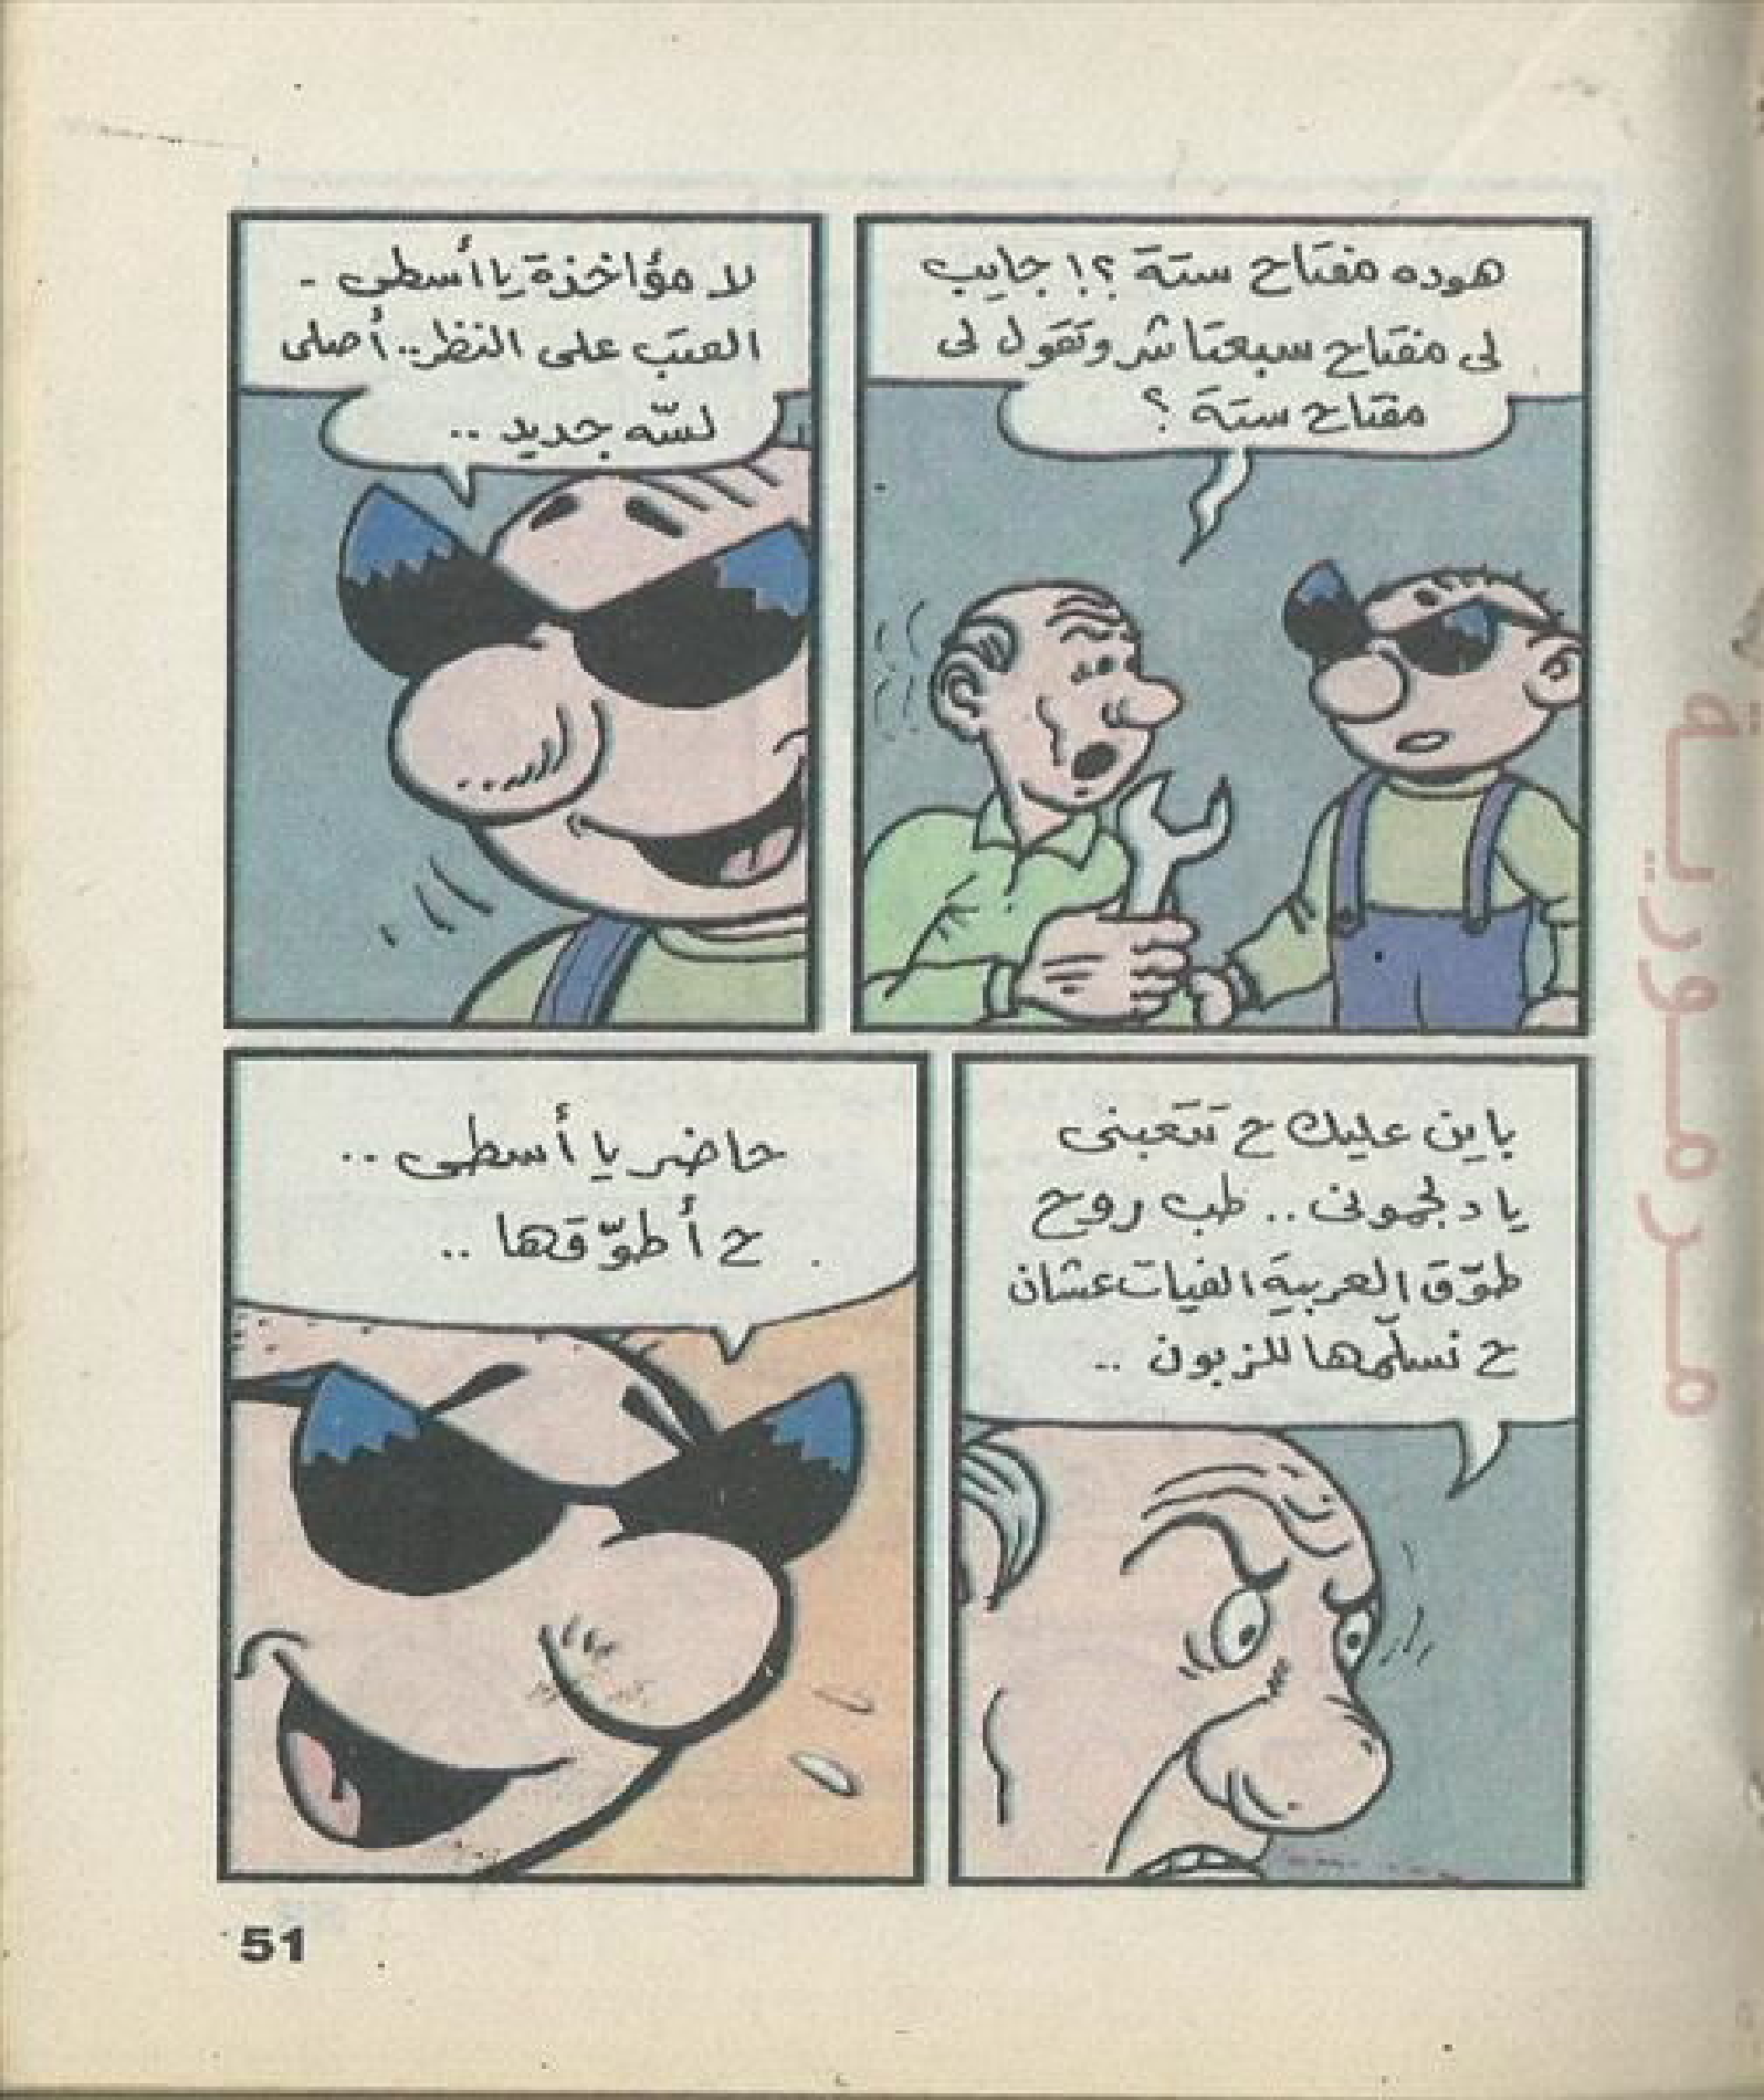 هوده مفتاح ستة ؟! جايب
لى مفتاح سبعتاشر وتقول لى
مفتاح ستة ؟
لا مؤاخذة يا أسطى -
العتب على النظر.. أصلى
لسّه جديد ..
باين عليك ح تتعبنى
يا دبجمونى .. طب روح
طوّق العربية الفيات عشان
ح نسلّمها للزبون ..
حاضر يا أسطى ..
ح أطوّقها ..
51